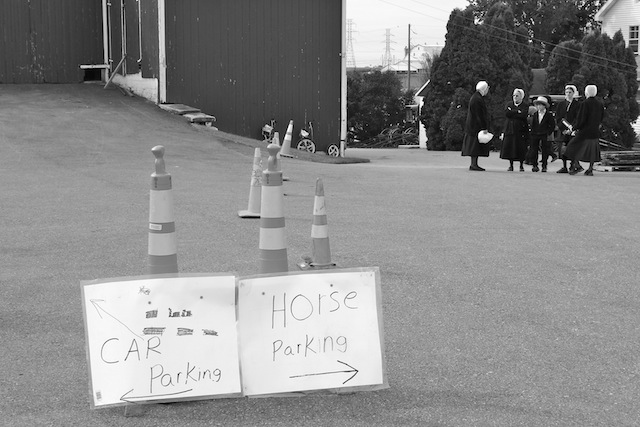 CAR
Parking
Horse
Parking